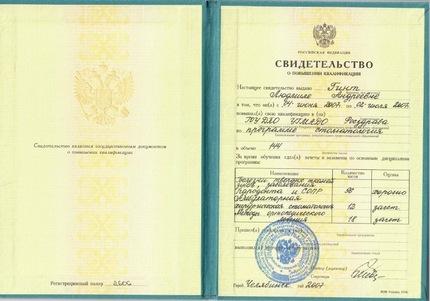 Свидетельство является государственным документом
о повышении квалификации
Регистрационный номер
РОССИЙСКАЯ ФЕДЕРАЦИЯ
СВИДЕТЕЛЬСТВО
О ПОВЫШЕНИИ КВАЛИФИКАЦИИ
Настоящее свидетельство выдано Гинт
Людмиле Андреевне
в том, что он(а) с 04 июня 2007 по 02 июля 2007
повысил(а) свою квалификацию в (на)
ГОУ ДПО УГМАДО Росздрава
по программе стоматология
в объеме 144
За время обучения сдал(а) зачеты и экзамены по основным дисциплинам
программы:
Наименование Количество часов Оценка
Болезни твердых тканей
зубов, заболевания
пародонта и СОПР хорошо
Амбулаторная
хирургическая стоматология 12 зачет
Методы ортопедического
лечения 18 зачет
Прошел(а)
выполнил(а)
Город Челябинск год 2007